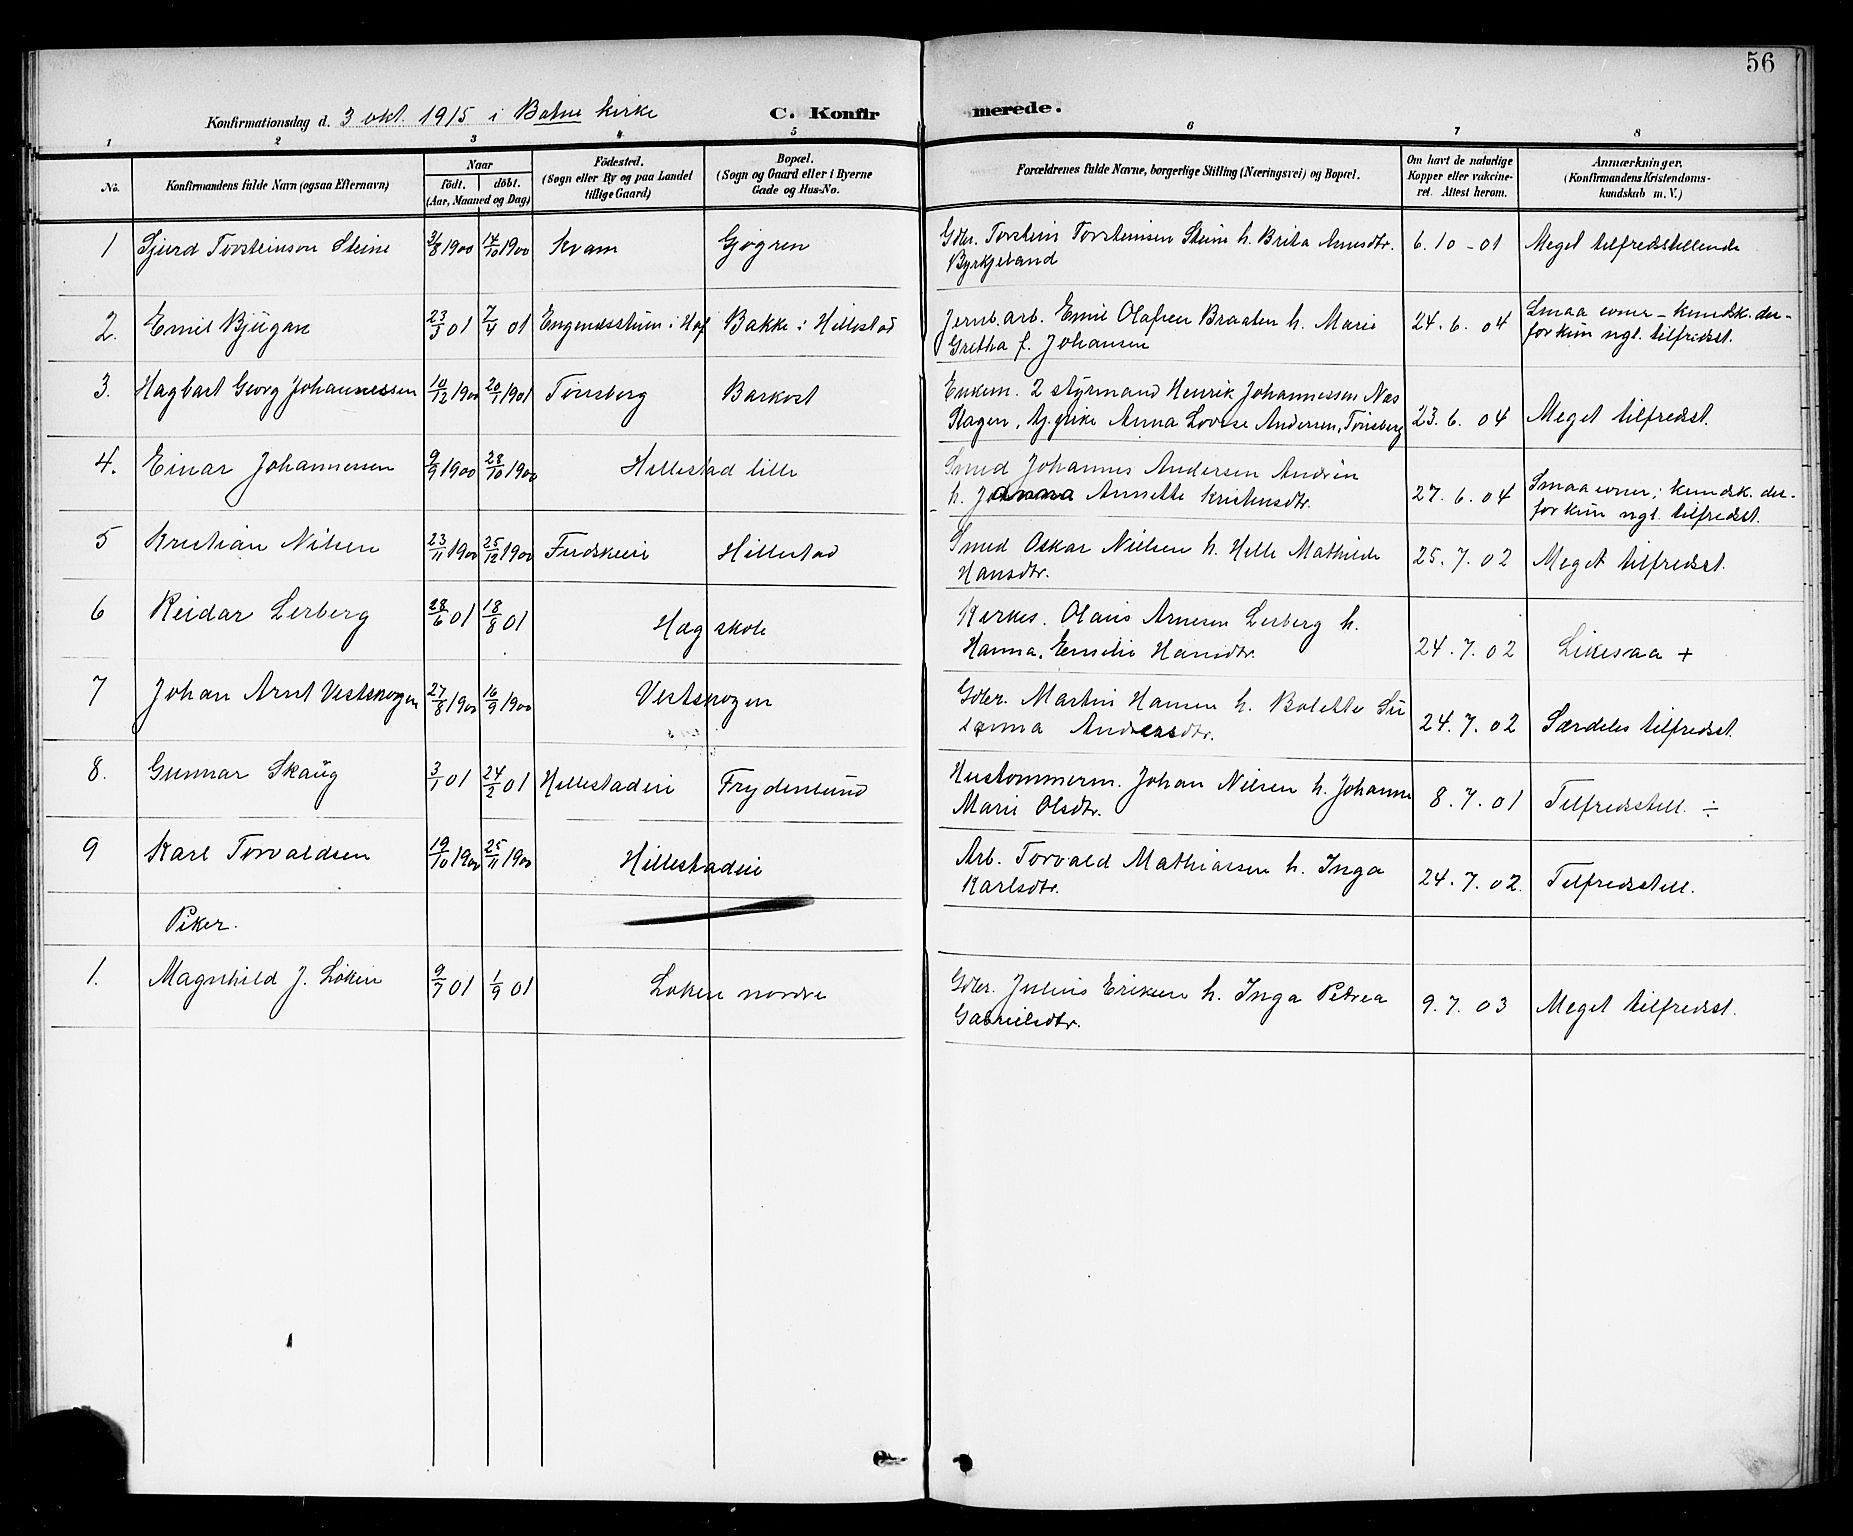 56
Konfirmationsdag d. 3 okt. 1915 i Botne kirke C. Konfirmerede.
1 2 3 4 5 6 7 8
No. Konfirmandens fulde Navn (ogsaa Efternavn) Naar födt. döbt. (Aar, Maaned og Dag) Födested. (Sogn eller By og paa Landet tillige Gaard) Bopæl. (Sogn og Gaard eller i Byerne Gade og Hus-No. Forældrenes fulde Navne, borgerlige Stilling (Næringsvei) og Bopæl. Om havt de naturlige Kopper eller vakcineret. Attest herom. Anmærkninger. (Konfirmandens Kristendomskundskab m. V.)
1 Sjurd Torsteinson Steine 31/8 1900 14/10 1900 Kvam Gjøgren Gdbr. Torstein Torsteinsen Steine h. Brita Arnesdtr. 6.10-01 Meget tilfredstillende
Byrkjeland
2. Emil Bjugan 23/3 01 7/4 01 i Hof Bakke i Hillestad Jernb.arb. Emil Olafsen Braaten h. Marie 24.6.04 Smaa evner - kundsk. der-
Gretha f. Johansen for kun ngl. tilfredst.
3. Hagbart Georg Johannessen 10/12 1900 20/1 1901 Tönsberg Barkost Enkem. 2 styrmand Henrik Johannessen Næs
Slagen, Anna Lovise Andersen, Tönsberg 23.6.04 Meget tilfredst.
4. Einar Johannessen 9/9 1900 28/10 1900 Hillestad lille Smed Johannes Andersen
h. Johanna Annette Kristensdtr. 27.6.04 Smaa evner; kundsk. der-
for kun ngl. tilfredst.
5 Kristian Nilsen 23/11 1900 25/12 1900 Hillestad Smed Oskar Nielsen h. Helle Mathilde 25.7.02 Meget tilfredsst.
Hansdtr.
6 Reidar Lerberg 28/6 01 18/8 01 Hag skole Kirkes. Olaus Arnesen Lerberg h.
Hanna Emilie Hansdtr. 24.7.02 Likesaa +
7 Johan Arnt Vestskogen 27/8 1900 16/9 1900 Vestskogen Gdbr. Martin Hansen h. Bolette Su
sanna Andersdtr. 24.7.02 Særdeles tilfredst.
8. Gunnar Skaug 3/1 01 24/2 01 Hillestadeie Frydenlund Hustømmerm. Johan Nilsen h. Johanne
Marie Olsdtr. 8.7.01 Tilfredsstill. ÷
9 Karl Torvaldsen 19/10 1900 25/11 1900 Hillestadeie Arb. Torvald Mathiassen h. Inga
Karlsdtr. 24.7.02. Tilfredsstill.
Piker.
1. Magnhild J. Løken 9/7 01 1/9 01 Løken nordre Gdbr. Julius Eriksen h. Inga Petrea
Gabrielsdtr. 9.7.03 Meget tilfredsst.